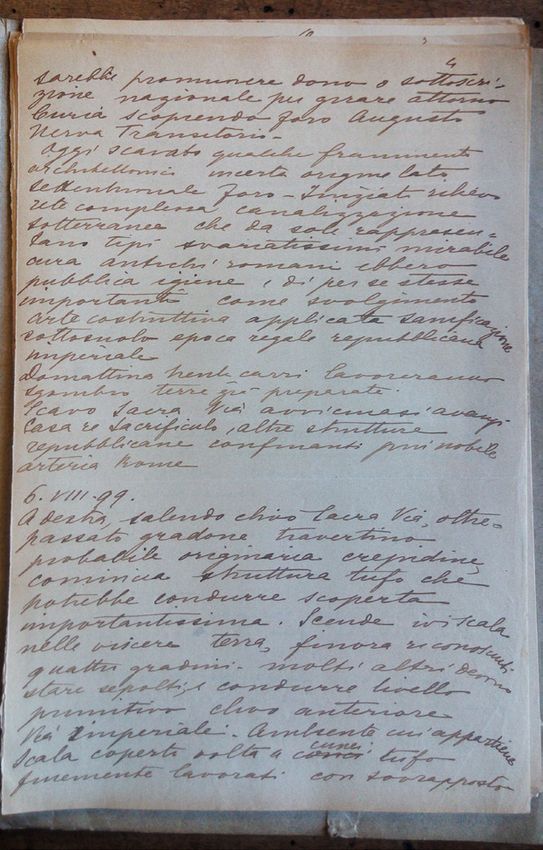 4
sarebbe promuovere dono o sottoscri-
zione nazionale per girare attorno
Curia scoprendo foro Augusto
Nerva Transitorio-
Oggi scavato qualche frammento
architettonico incerta origine lato
settentrionale foro - Iniziato rilievo
rete complessa canalizzazione
sotterranea che da sole rappresen-
tano tipi svariatissimi mirabile
cura antichi romani ebbero
pubblica igiene, di per se stesse
importanti come svolgimento
arte costruttiva applicata sanificazione
sottosuolo epoca regale repubblicana
imperiale
Domattina venti carri lavoreranno
sgombro terre già preparate.
Scavo Sacra Via avvicinasi avanzi
Casa re Sacrificulo, altre strutture
repubblicane confinanti più nobile
arteria Rome
6. VIII. 99.
A destra, salendo clivo Sacra Via, oltre-
passato gradone travertino
probabile originaria crepidine,
comincia struttura tufo che
potrebbe condurre scoperta
importantissima. Scende ivi scala
nelle viscere terra, finora riconosciuti
quattro gradini - molti altri devono
stare sepolti e condurre livello
primitivo clivo anteriore
Via imperiale. Ambiente cui appartiene
scala coperto volta a cunei tufo
finemente lavorati con sovrapposto